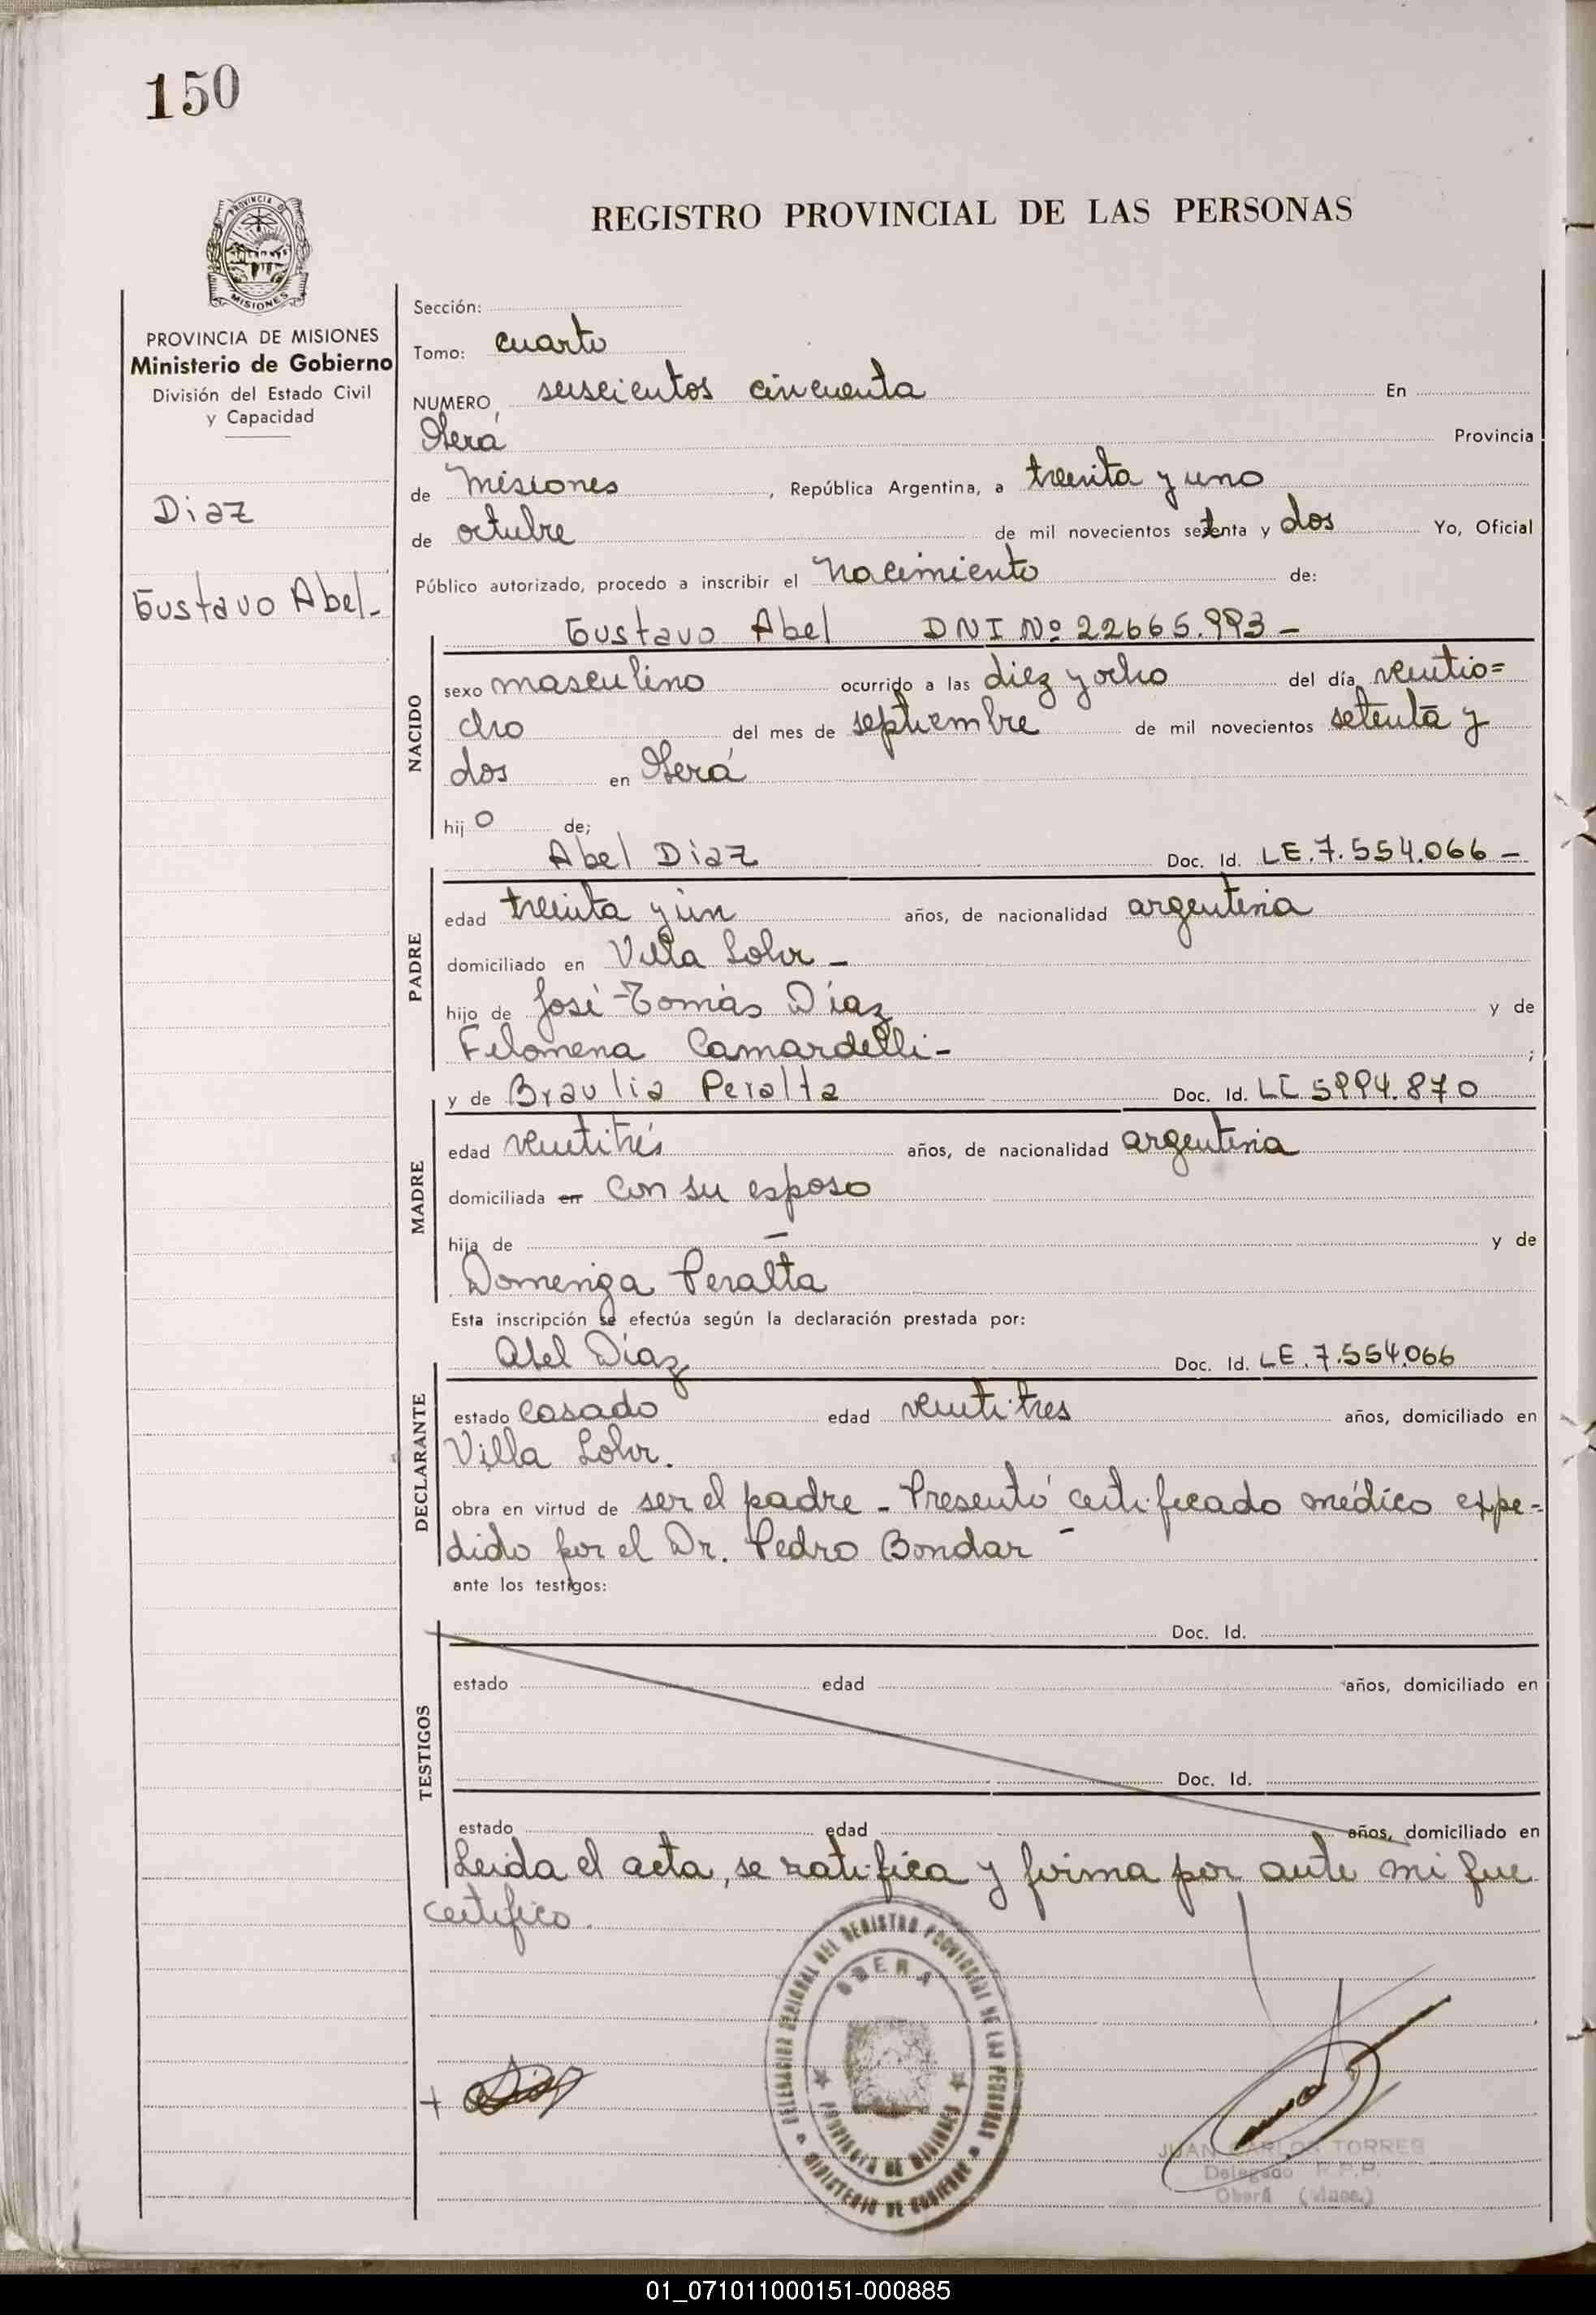 150
REGISTRO PROVINCIAL DE LAS PERSONAS
PROVINCIA DE MISIONES
Ministerio de Gobierno
División del Estado Civil
y Capacidad
Diaz
Gustavo Abel-
Sección:
Tomo: cuarto
NUMERO, seiscientos cincuenta En
Oberá Provincia
de Misiones, República Argentina, a treinta y uno
de octubre de mil novecientos setenta y dos Yo, Oficial
Público autorizado, procedo a inscribir el nacimiento de:
Gustavo Abel DNI Nº 22665.993-
NACIDO
sexo masculino ocurrido a las diez y ocho del día veintio=
cho del mes de septiembre de mil novecientos setenta y
dos en Oberá
hijo de;
Abel Diaz Doc. Id. LE.7.554.066-
PADRE
edad treinta y un años, de nacionalidad argentina
domiciliado en Villa Lohr-
hijo de José Tomás Díaz y de
Filomena Camardelli- ;
y de Braulia Peralta Doc. Id. LC 5994.870
MADRE
edad veintitrés años, de nacionalidad argentina
domiciliada en con su esposo
hija de — y de
Domeniga Peralta
Esta inscripción se efectúa según la declaración prestada por:
Abel Díaz Doc. Id. LE.7.554.066
DECLARANTE
estado casado edad veintitres años, domiciliado en
Villa Lohr.
obra en virtud de ser el padre - Presentó certificado médico expe-
dido por el Dr. Pedro Bondar-
ante los testigos:
Doc. Id.
TESTIGOS
estado edad años, domiciliado en
Doc. Id.
estado edad años, domiciliado en
Leida el acta, se ratifica y firma por ante mi que
certifico.
DELEGACION REGIONAL DEL REGISTRO PROVINCIAL DE LAS PERSONAS
OBERA
PROVINCIA DE MISIONES
MINISTERIO DE GOBIERNO
JUAN CARLOS TORRES
Delegado R.P.P.
Oberá (Mnes.)
01_071011000151-000885